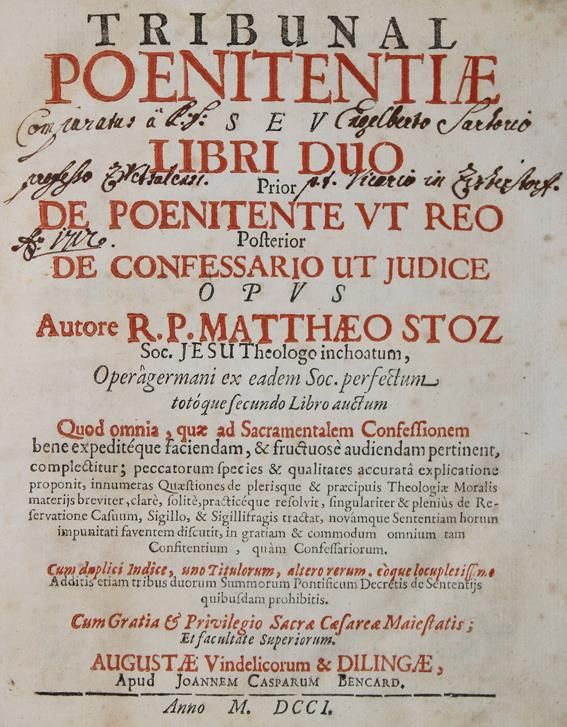 TRIBUNAL
POENITENTIÆ
Comparatus â P. F: SEV Engelberto Sartorio
LIBRI DUO
professo
Prior p.t. Vicario in
DE POENITENTE VT REO
Ao 1712.
Posterior
DE CONFESSARIO UT JUDICE
OPVS
Autore R.P. MATTHÆO STOZ
Soc. JESU Theologo inchoatum,
Operâ germani ex eadem Soc. perfectum
totóque secundo Libro auctum
Quod omnia, quæ ad Sacramentalem Confessionem
bene expeditéque faciendam, & fructuosè audiendam pertinent,
complectitur; peccatorum species & qualitates accuratâ explicatione
proponit, innumeras Quæstiones de plerisque & præcipuis Theologiæ Moralis
materijs breviter, clarè, solitè, practicéque resolvit, singulariter & pleniùs de Re-
servatione Casuum, Sigillo, & Sigillifragis tractat, novámque Sententiam horum
impunitati faventem discutit, in gratiam & commodum omnium tam
Confitentium, quàm Confessariorum.
Cum duplici Indice, uno Titulorum, altero rerum, eòque locupletissimo
Additis etiam tribus duorum Summorum Pontificum Decretis de Sententijs
quibusdam prohibitis.
Cum Gratia & Privilegio Sacræ Cæsareæ Maiestatis;
Et facultate Superiorum.
AUGUSTÆ Vindelicorum & DILINGÆ,
Apud JOANNEM CASPARUM BENCARD.
Anno M. DCCI.